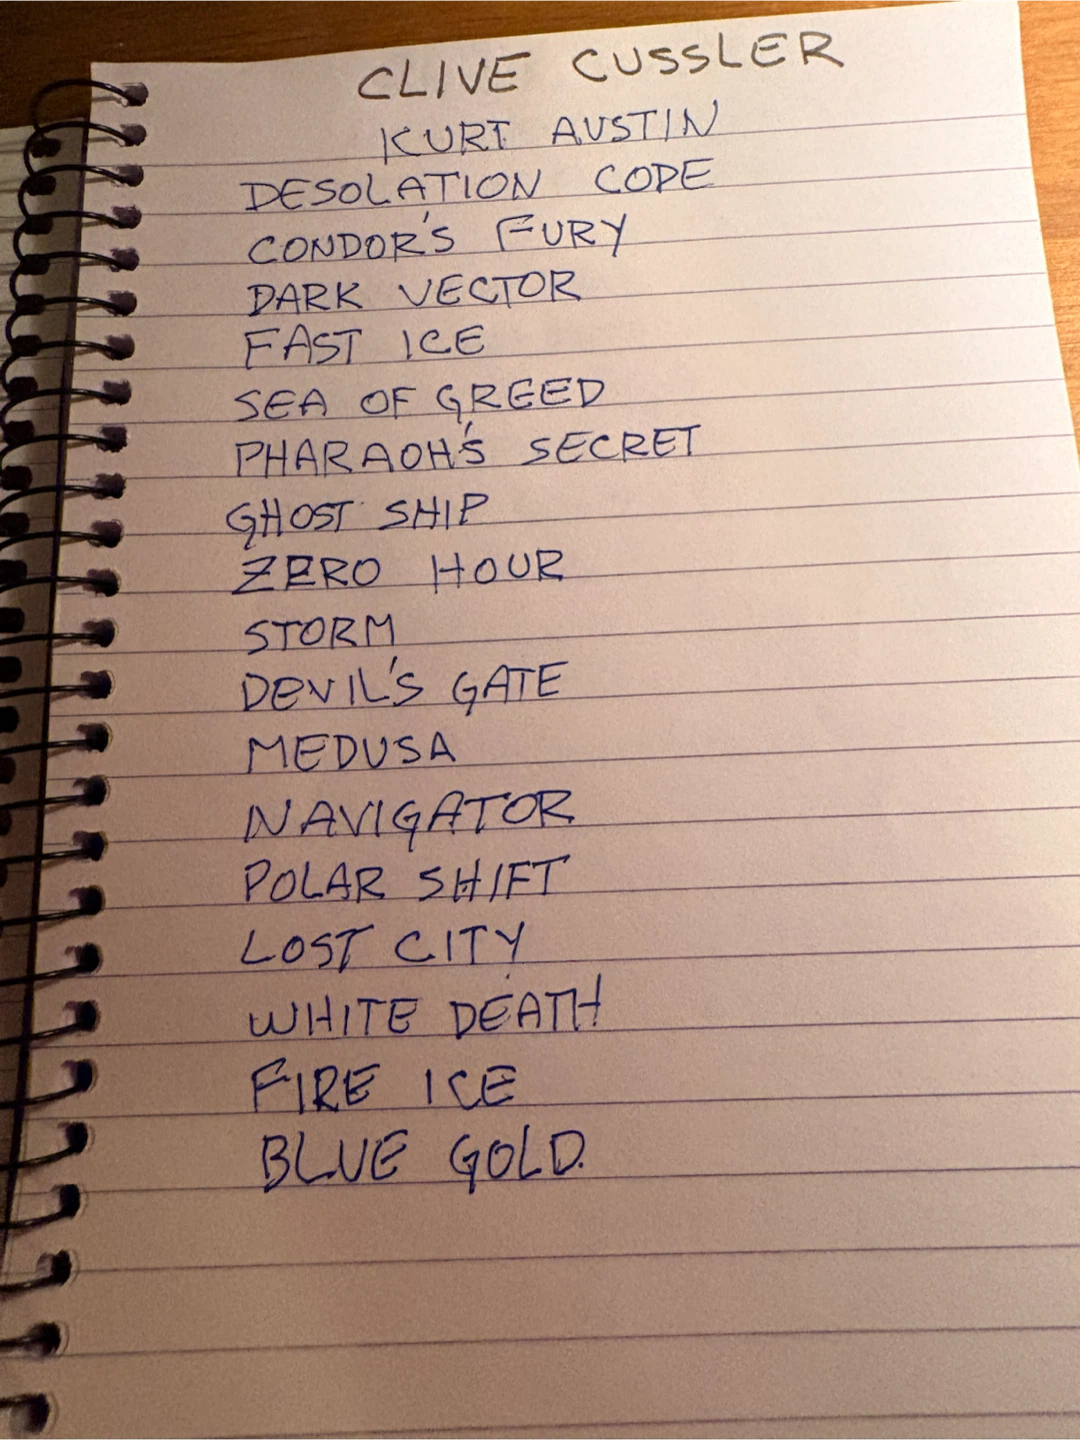 CLIVE CUSSLER
KURT AUSTIN
DESOLATION CODE
CONDOR'S FURY
DARK VECTOR
FAST ICE
SEA OF GREED
PHARAOH'S SECRET
GHOST SHIP
ZERO HOUR
STORM
DEVIL'S GATE
MEDUSA
NAVIGATOR
POLAR SHIFT
LOST CITY
WHITE DEATH
FIRE ICE
BLUE GOLD.